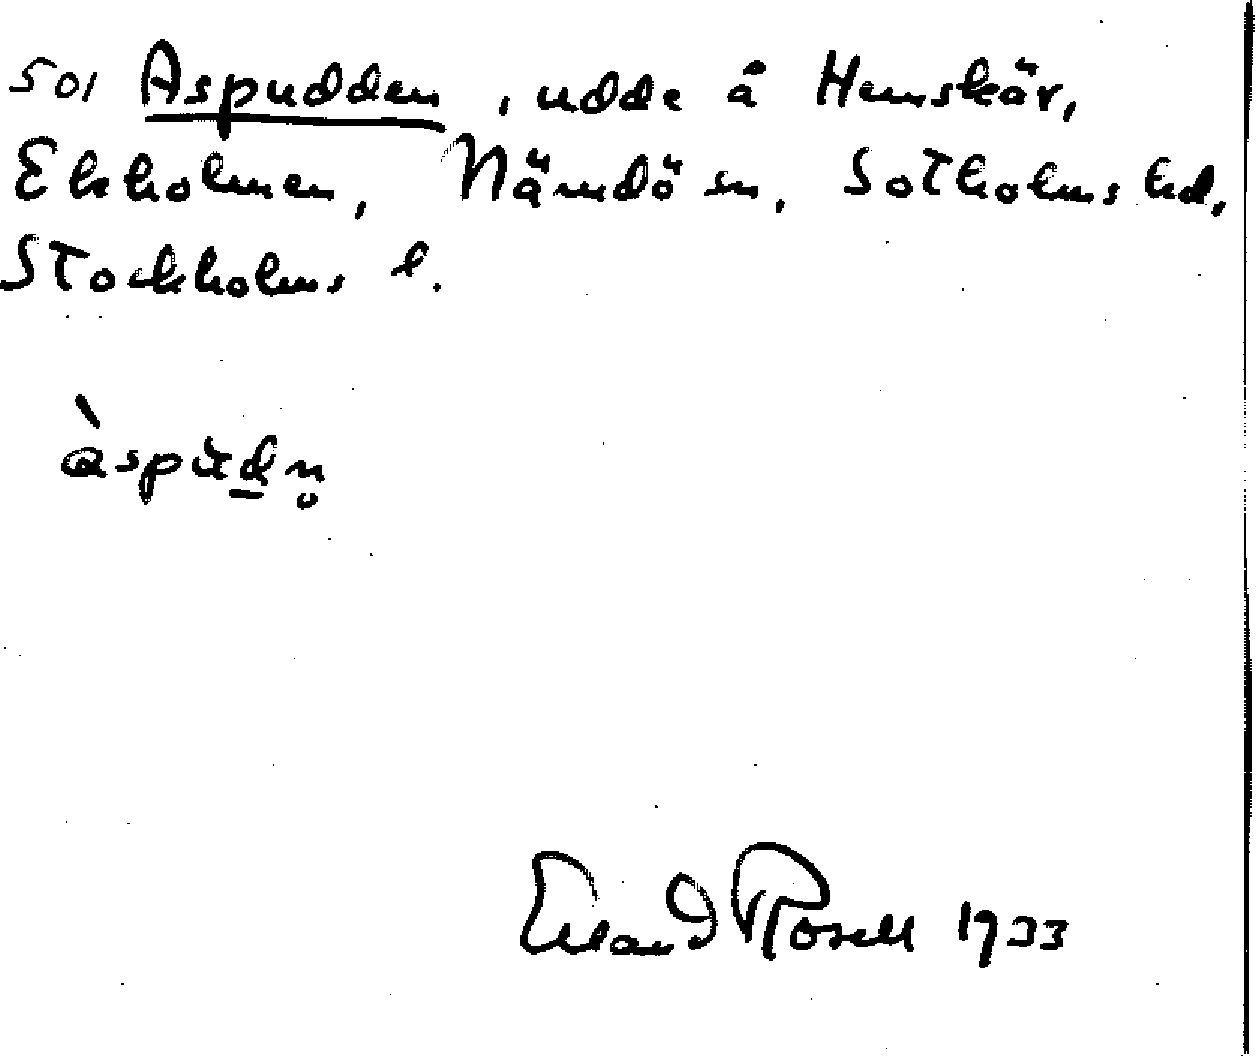 501 Aspudden, udde å Hemskär,
Ekholmen, Nämdö sn, Sotholms hd,
Stockholms l.
àspùdn̥
Erland Rosell 1933